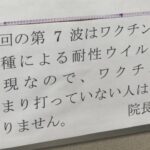 回の第7波はワクチン
種による耐性ウイル
現なので、ワクチ
まり打っていない人は
りません。
院長